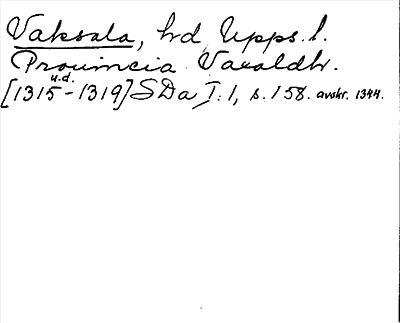 Vaksala, hd, Upps. l.
Prouincia Vaxaldhr.
u.d.
[1315-1319] SDa I:1, s. 158. avskr. 1344.